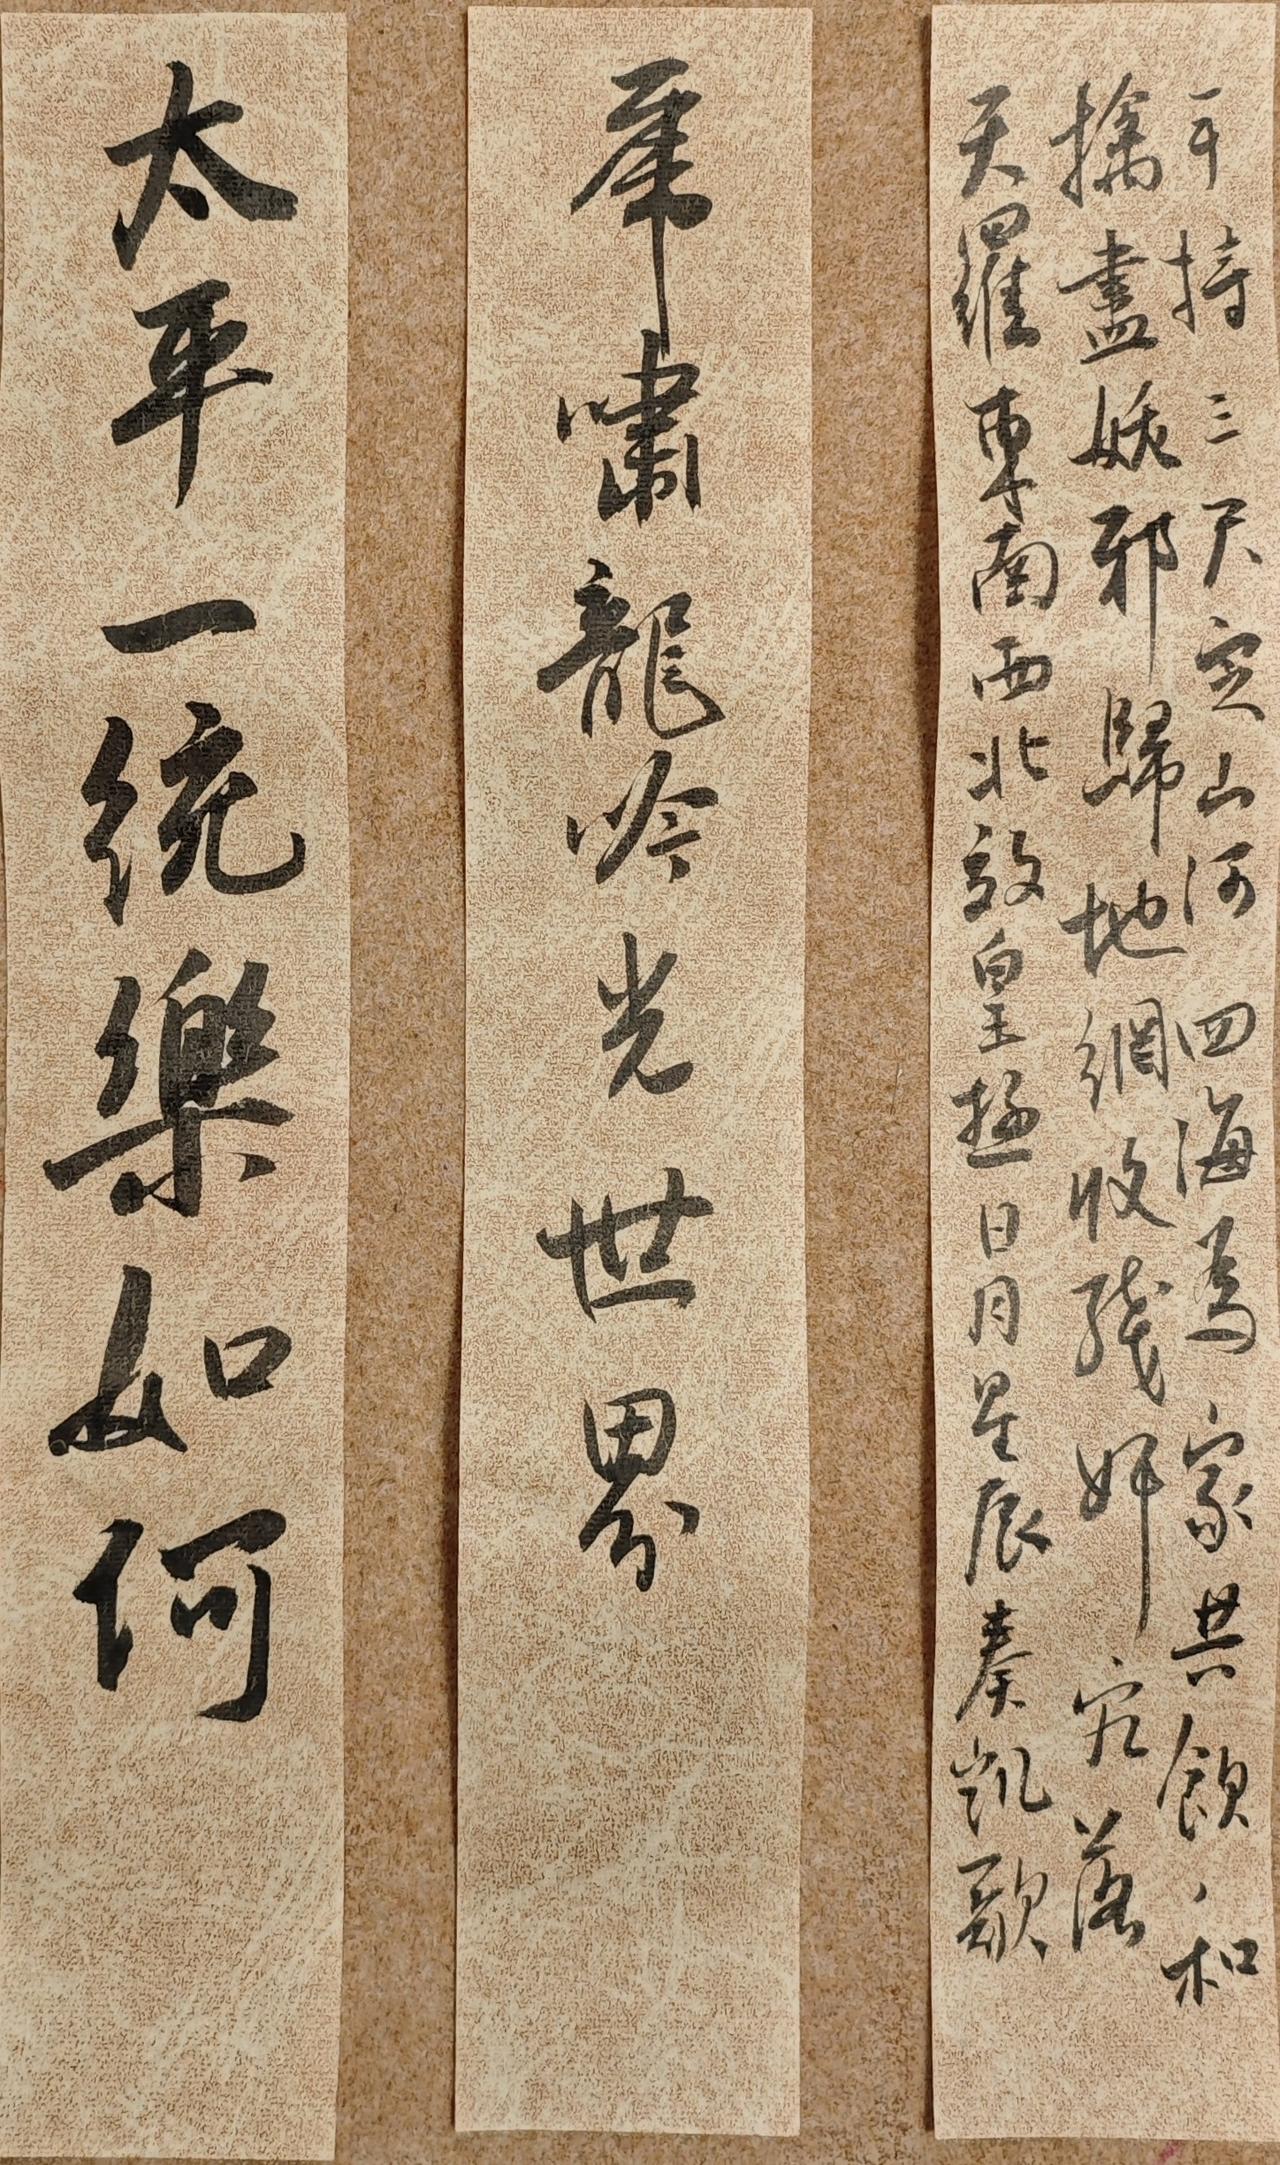 手持三尺定山河四海為家共飲和
擒盡妖邪歸地網收殘奸宄落
天羅東南西北效皇極日月星辰奏凱歌
虎嘯龍吟光世界
太平一統樂如何